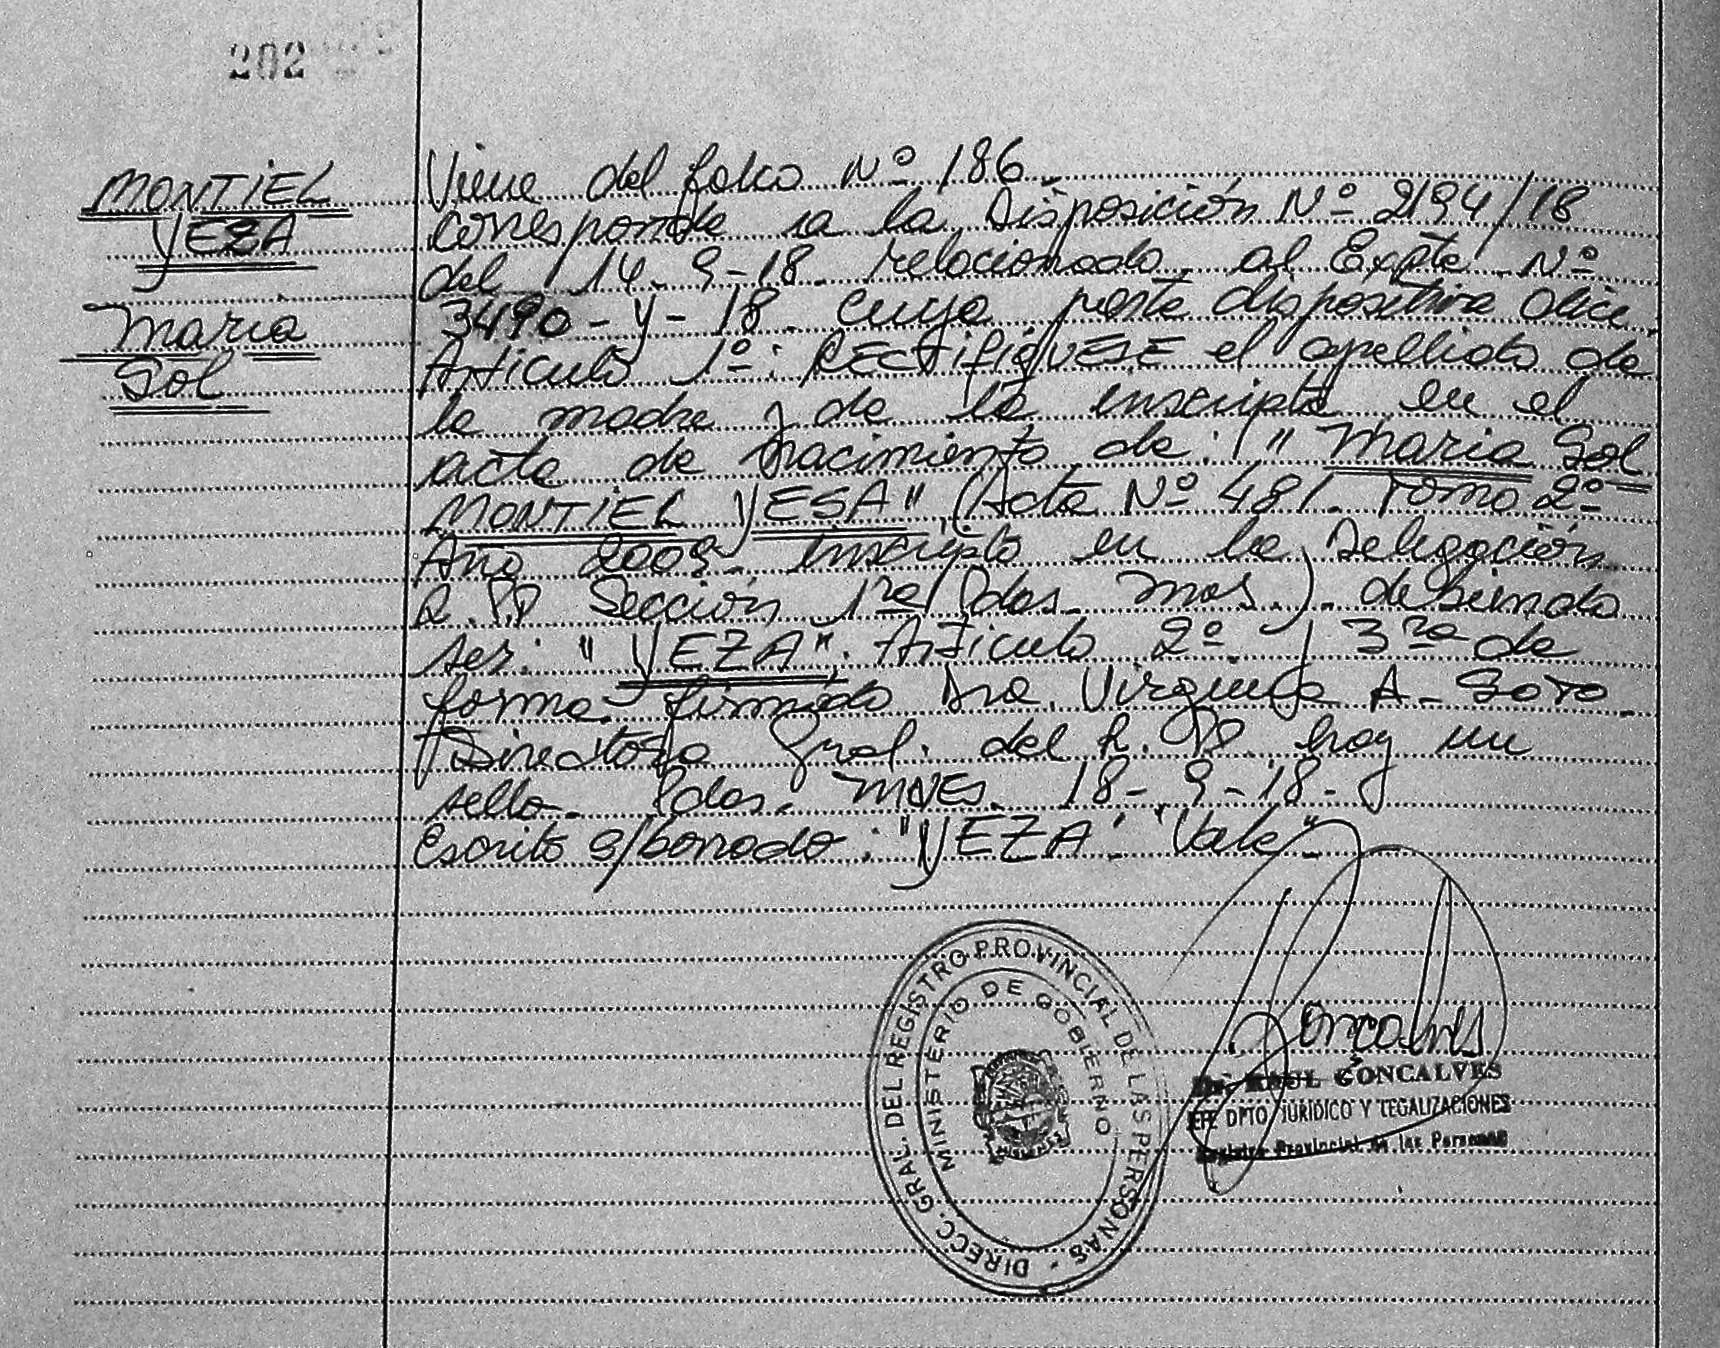 202
MONTIEL
YEZA
Maria
Sol
Viene del folio Nº 186.
corresponde a la Disposición Nº 2194/18
del 14-9-18 relacionado al Expte Nº
3490-Y-18. cuya parte dispositiva dice
Articulo 1º: RECTIFIQUESE el apellido de
la madre y de la inscripta en el
acta de nacimiento de: "Maria Sol
MONTIEL YESA" (Acta Nº 481 Tomo 2º
Año 2009 inscripto en la Delegación
R.PP Sección 1ra Pdas. Mnes.). debiendo
ser: "YEZA". Articulo 2º y 3ra de
forma firmado Dra. Virginia A. SOTO
Directora Gral. del R.PP. hay un
sello. Pdas. MNES. 18-9-18-
Escrito s/borrado: "YEZA" "Vale"
DIRECC. GRAL. DEL REGISTRO PROVINCIAL DE LAS PERSONAS
MINISTERIO DE GOBIERNO
Goncalves
Dr. RAUL GONCALVES
JEFE DPTO JURIDICO Y LEGALIZACIONES
Registro Provincial de las Personas